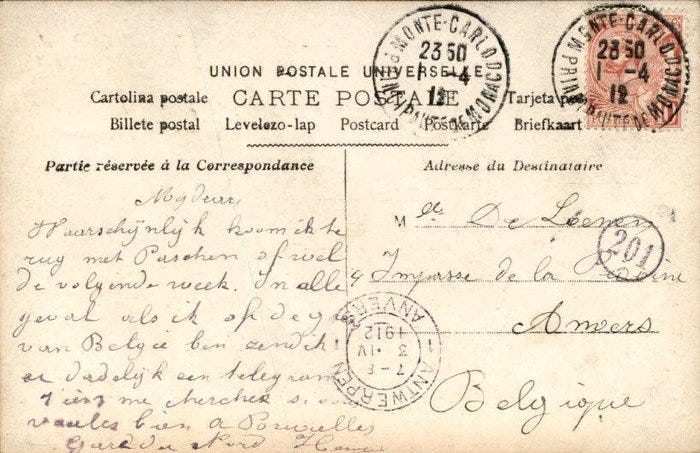 UNION POSTALE UNIVERSELLE
CARTE POSTALE
Cartolina postale
Tarjeta
Billete postal Levelezo-lap Postcard Postkarte Briefkaart
Partie réservée à la Correspondance
Adresse du Destinataire
MONTE-CARLO
PRINCIPAUTÉ DE MONACO
23 50
1 -4
12
MONTE-CARLO
PRINCIPAUTÉ DE MONACO
23 50
1 -4
12
My dear
Waarschijnlijk kom ik te
rug met Paschen ofwel
de volgende week. In alle
geval als ik op de
van België ben zend ik
er dadelijk een telegram
me chercher si
voulez bien a Bruxelles
Gare du Nord
Mlle De
201
4 Impasse de la
Anvers
Belgique
ANTWERPEN
ANVERS
7-8
3 · IV
1912